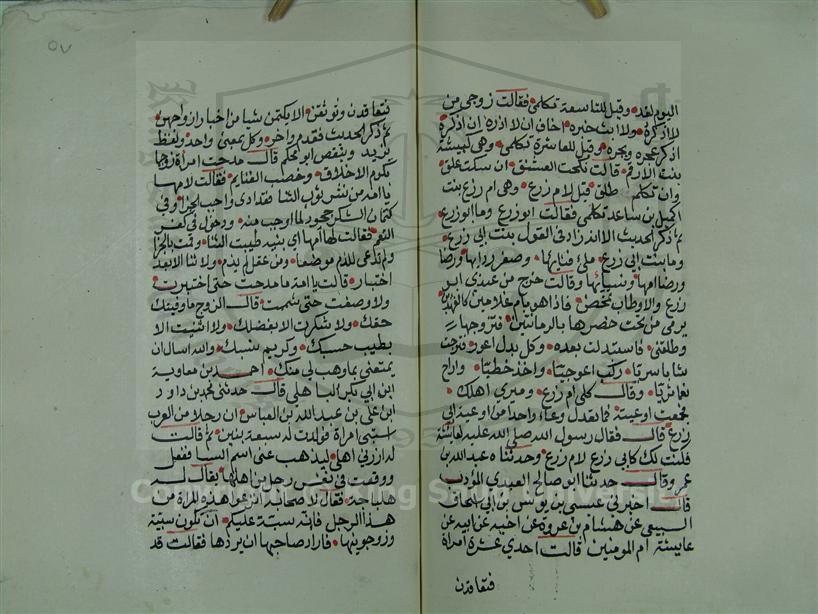 اليوم لغد وقيل للتاسعة تكلمي فقالت زوجي من
لا اذكره ولا ابث خبره اخاف ان لا اذره ان اذكره
اذكر عجره وبجره وقيل للعاشرة تكلمي وهي كبيشة
بنت الارقم قالت نكحت العشنق ان سكت علق
وان تكلم طلق قيل لام زرع وهي ام زرع بنت
اكيمل بن ساعد تكلمي فقالت ابوزرع وما ابوزرع
ثم ذكر الحديث الا انه زاد في القول بنت ابي زرع
وما بنت ابي زرع ملء وصفر ردائها ورضا
ورضا امها ونسيائها وقالت خرج من عندي ابو
زرع والاوطاب تمخض فاذا هو بام غلامين كالفهدين
يرمي من تحت خصرها بالرمانتين فتزوجها
وطلقني فاستبدلت بعده وكل بدل اعور فتزوجت
شابا سريا ركب اعوجيا واخذ خطيا واراح
نعما ثريا وقال كلي ام زرع وميري اهلك
فجمعت اوعيته فما تعدل وعاء واحدا من اوعية ابي
زرع قال فقال رسول الله صلى الله عليه لعايشة
فكنت لك كابي زرع لام زرع وحدثناه عبد الله بن
عمرو قال حدثنا ابو صالح العبدي المؤدب
قال اخبرني عيسى بن يونس بن ابي اسحاق
السبيعي عن هشام بن عروة عن اخيه عن ابيه عن
عايشة ام المومنين قالت احدي عشرة امراة
فتعاقدن
٥٧
فتعاقدن وتوثقن الا يكتمن شيا من اخبار ازواجهن
ثم ذكر الحديث فقدم واخر وكل بمعنى واحد ولفظ
يزيد وينقص ابو محكم قال مدحت امراة زوجها
بكرم الاخلاق وخصب الفناء فقالت لامها
يا امه من نشر ثوب الثنا فقد ادى واجب الجزا وفي
كتمان الشكر جحود لما اوجب منه ودخول في كفر
النعم فقالت لها امها اي بنية طيبت الثنا وقمت بالجزا
ولم تدعي للذم موضعا ومن عقل لم يذم ولا ثنا الا بعد
اختبار قالت يا امه ما مدحت حتى اختبرت
ولا وصفت حتى شممت قال الزوج ما وفيتك
حقك ولا شكرت الا بفضلك ولا اثنيت الا
بطيب حسبك وكريم نفسك والله اسال ان
يمتعني بما وهب لي منك احمد بن معاوية
ابن ابي بكر الباهلي قال حدثني محمد بن داود
ابن علي بن عبد الله بن العباس ان رجلا من العرب
استبى امراة فولدت له سبعة بنين ثم قالت
له ازرني اهلي ليذهب عني اسم السبا ففعل
ووقعت في نفس رجل من اهلها يقال له
هلباجة فقال لاصحابه انزعوا هذه المراة من
هذا الرجل فانه سبة عليكم ان تكون سبية
وزوجونيها فاراد صاحبها ان يردها فقالت قد